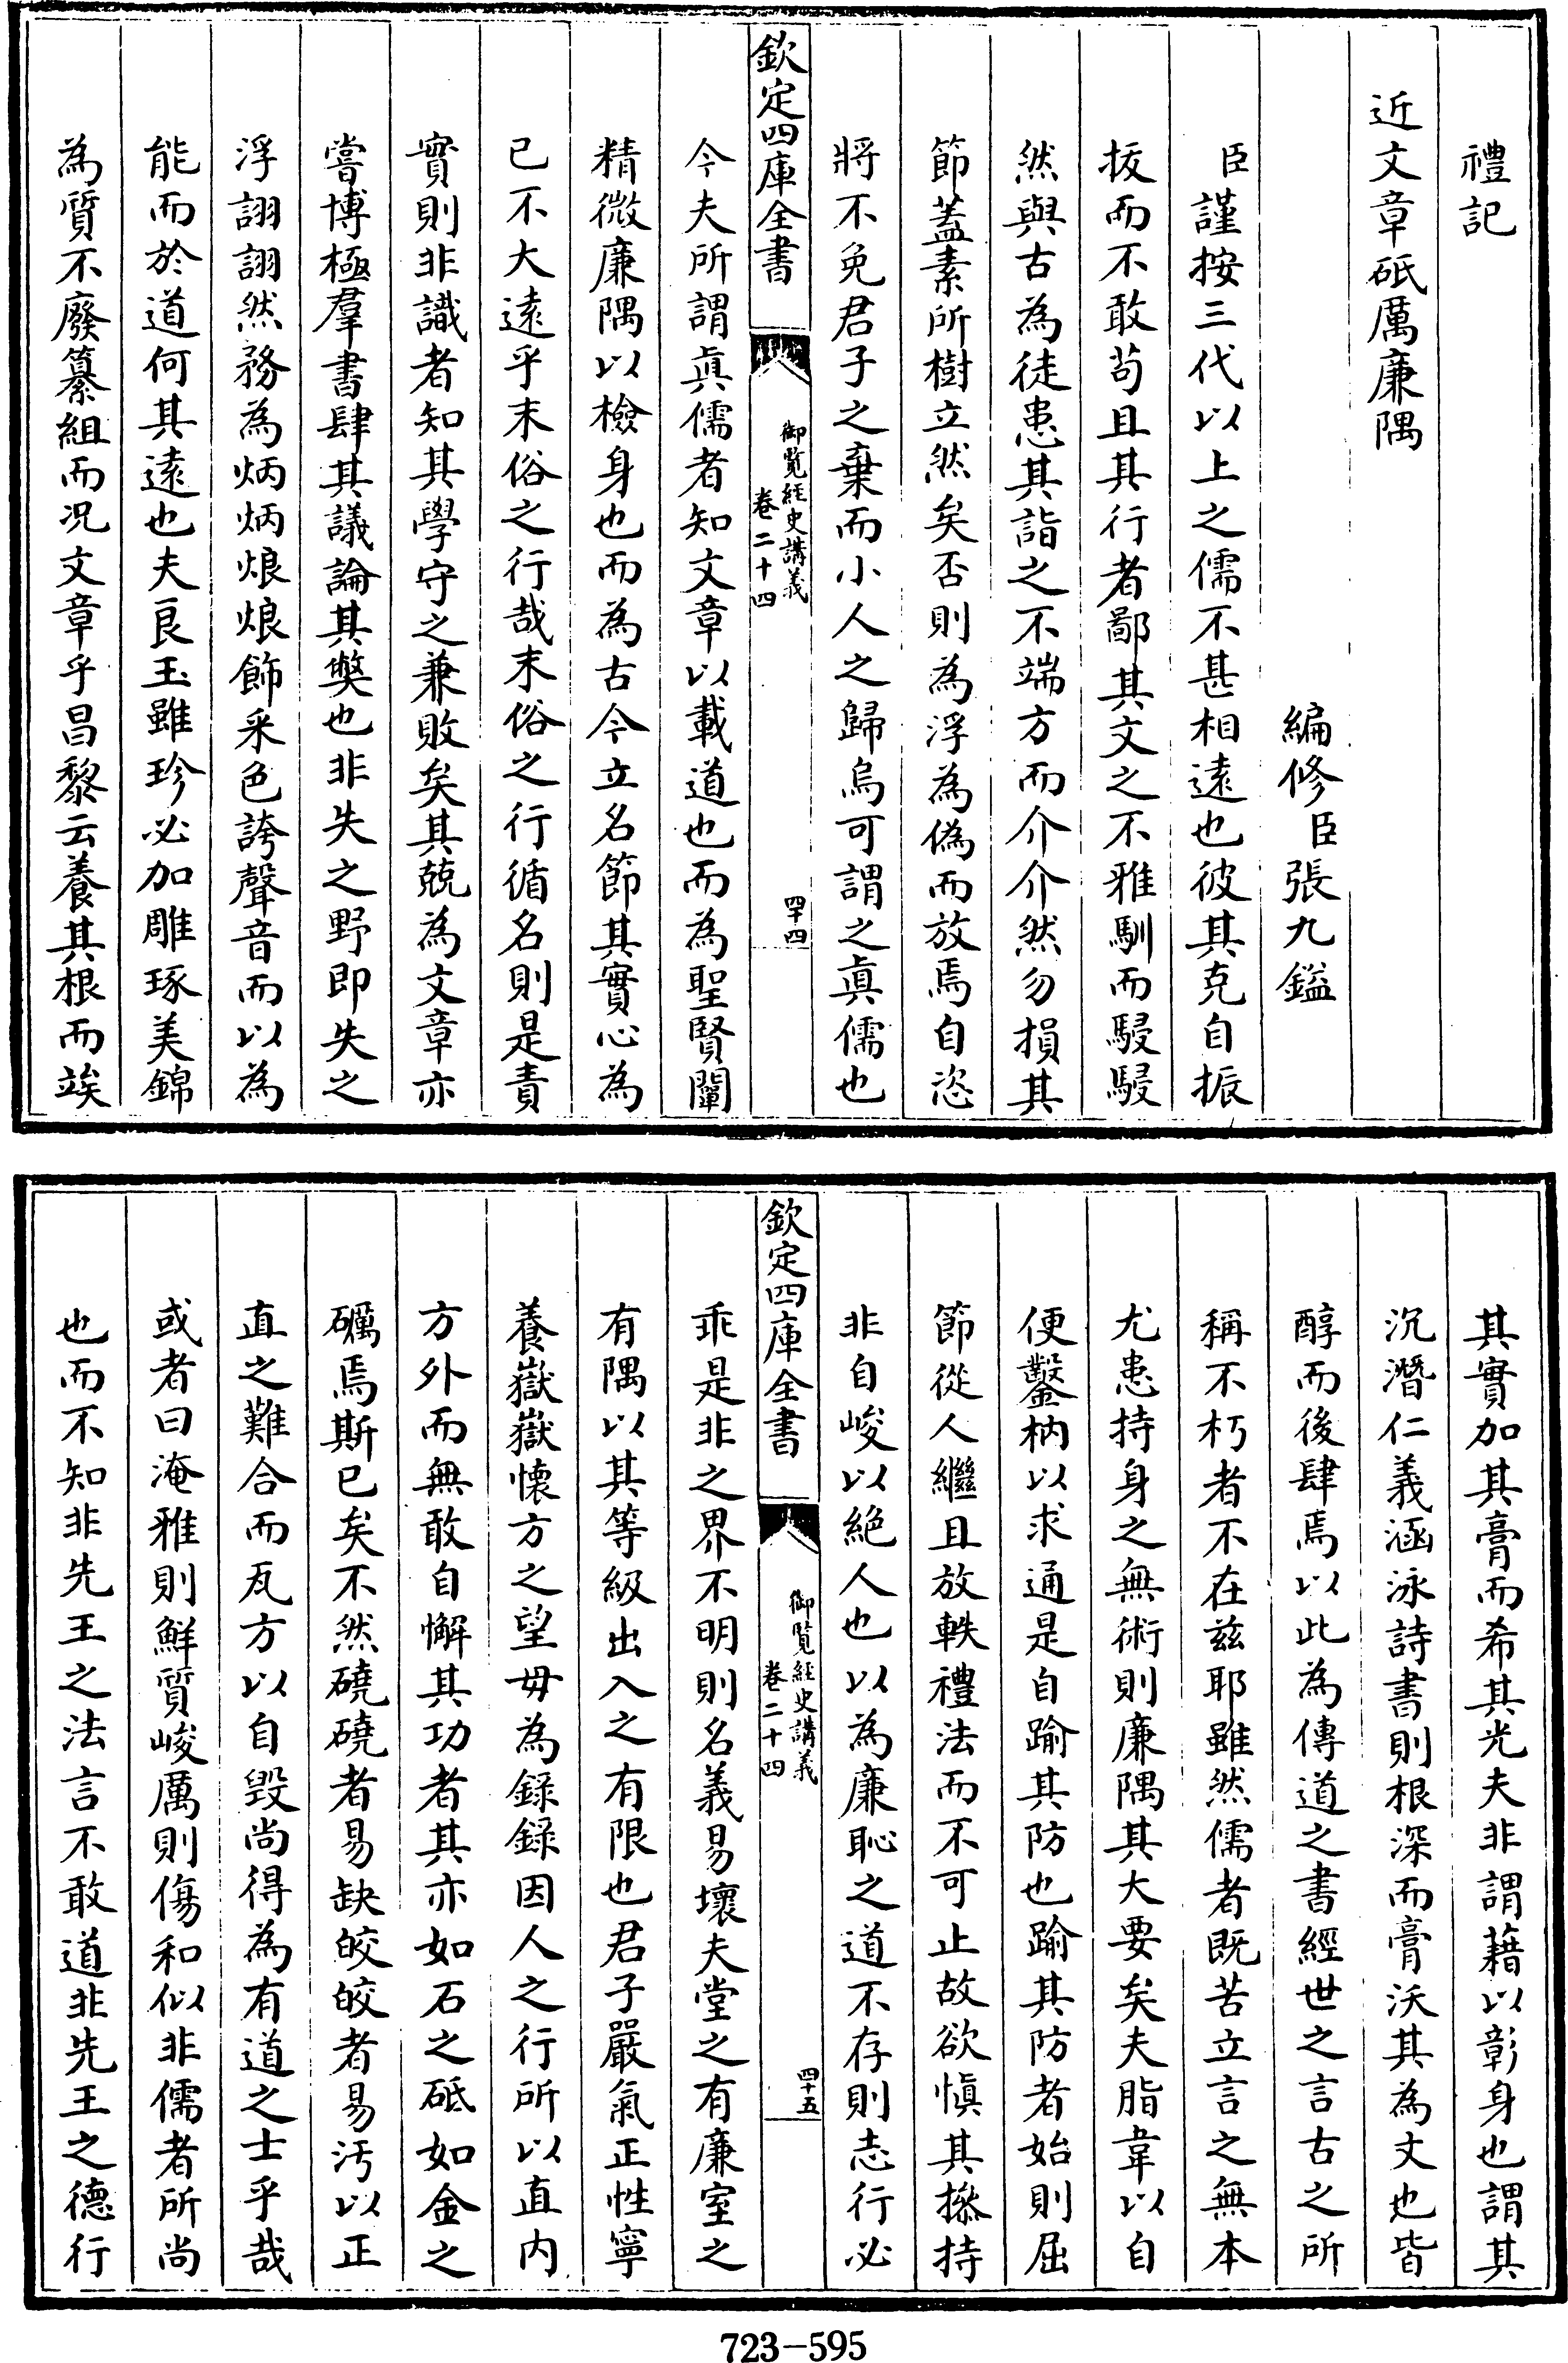 禮記
近文章砥厲廉隅
編修臣張九鎰
臣謹按三代以上之儒不甚相遠也彼其克自振
拔而不敢苟且其行者鄙其文之不雅馴而駸駸
然與古為徒患其詣之不端方而介介然勿損其
節蓋素所樹立然矣否則為浮為偽而放焉自恣
將不免君子之棄而小人之歸烏可謂之眞儒也
欽定四庫全書
御覽經史講義
卷二十四
四十四
今夫所謂眞儒者知文章以載道也而為聖賢闡
精微廉隅以檢身也而為古今立名節其實心為
已不大遠乎末俗之行哉末俗之行循名則是責
實則非識者知其學守之兼敗矣其兢為文章亦
嘗博極羣書肆其議論其獘也非失之野即失之
浮詡詡然務為炳炳烺烺飾采色誇聲音而以為
能而於道何其遠也夫良玉雖珍必加雕琢美錦
為質不廢纂組而况文章乎昌黎云養其根而竢
其實加其膏而希其光夫非謂藉以彰身也謂其
沉潛仁義涵泳詩書則根深而膏沃其為文也皆
醇而後肆焉以此為傳道之書經世之言古之所
稱不朽者不在兹耶雖然儒者既苦立言之無本
尤患持身之無術則廉隅其大要矣夫脂韋以自
便鑿枘以求通是自踰其防也踰其防者始則屈
節從人繼且放軼禮法而不可止故欲愼其㨿持
非自峻以絕人也以為廉恥之道不存則志行必
欽定四庫全書
御覽經史講義
卷二十四
四十五
乖是非之界不明則名義易壞夫堂之有廉室之
有隅以其等級出入之有限也君子嚴氣正性寧
養嶽嶽懷方之望毋為錄錄因人之行所以直内
方外而無敢自懈其功者其亦如石之砥如金之
礪焉斯已矣不然磽磽者易缺皎皎者易汚以正
直之難合而瓦方以自毀尚得為有道之士乎哉
或者曰淹雅則鮮質峻厲則傷和似非儒者所尚
也而不知非先王之法言不敢道非先王之德行
723-595